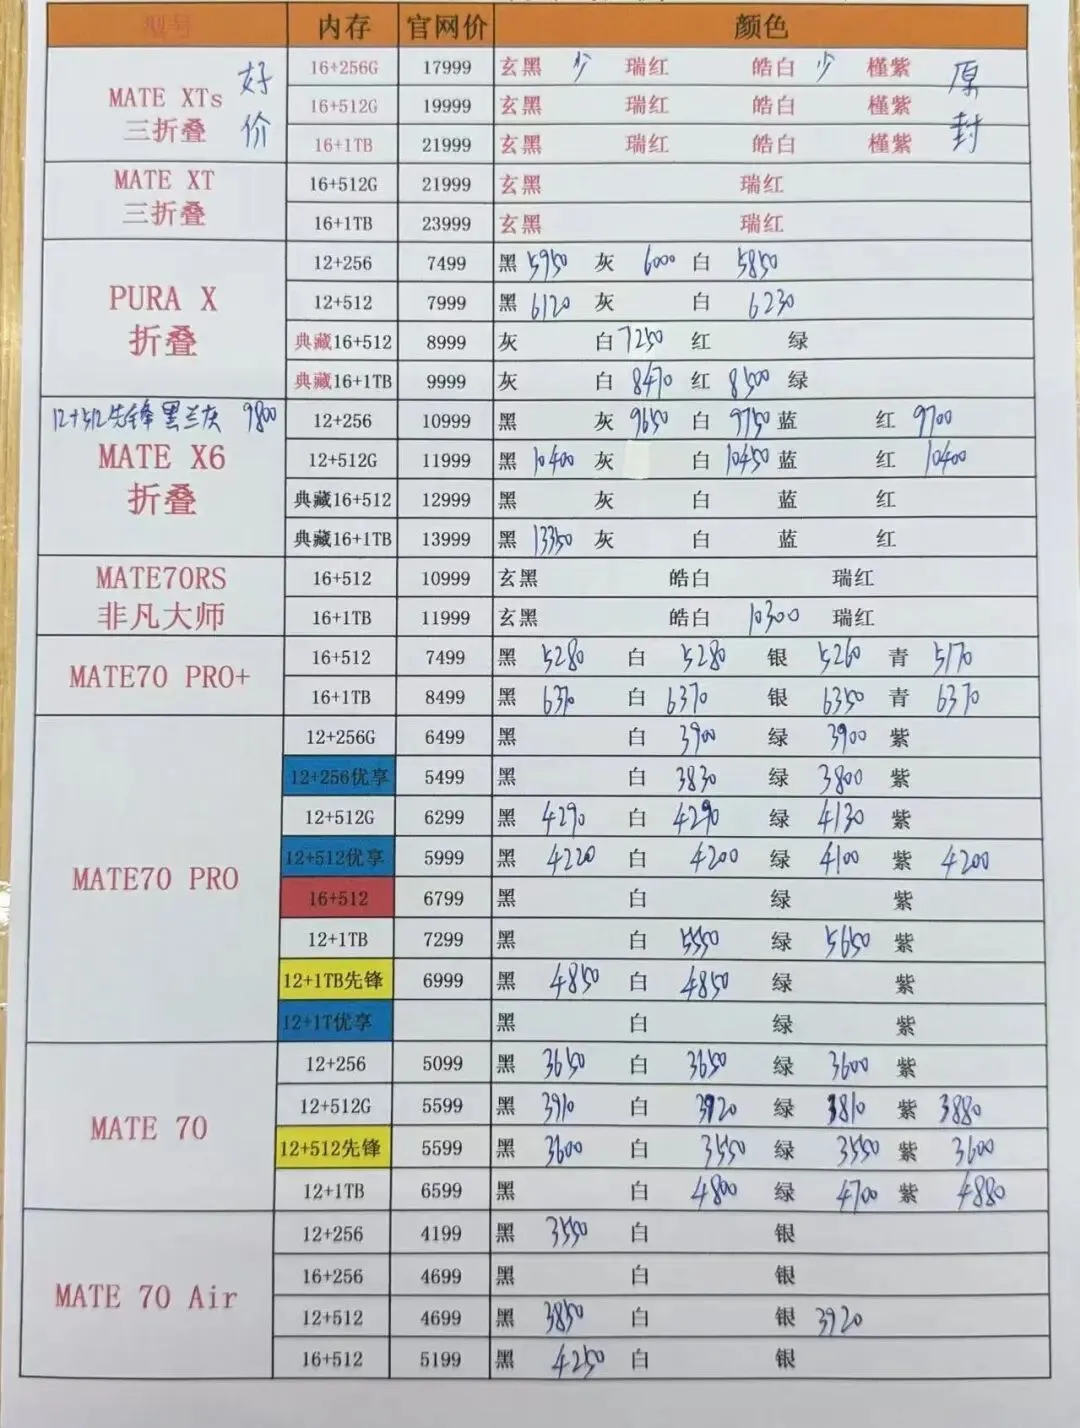 型号 内存 官网价 颜色
MATE XTs 三折叠 好价 原封
16+256G 17999 玄黑 少 瑞红 皓白 少 槿紫
16+512G 19999 玄黑 瑞红 皓白 槿紫
16+1TB 21999 玄黑 瑞红 皓白 槿紫
MATE XT 三折叠
16+512G 21999 玄黑 瑞红
16+1TB 23999 玄黑 瑞红
PURA X 折叠
12+256 7499 黑 5950 灰 6000 白 5850
12+512 7999 黑 6120 灰 白 6230
典藏16+512 8999 灰 白 7250 红 绿
典藏16+1TB 9999 灰 白 8470 红 8500 绿
12+512先锋 黑兰灰 9800
MATE X6 折叠
12+256 10999 黑 灰 9650 白 9750 蓝 红 9700
12+512G 11999 黑 10400 灰 白 10450 蓝 红 10400
典藏16+512 12999 黑 灰 白 蓝 红
典藏16+1TB 13999 黑 13350 灰 白 蓝 红
MATE70RS 非凡大师
16+512 10999 玄黑 皓白 瑞红
16+1TB 11999 玄黑 皓白 10300 瑞红
MATE70 PRO+
16+512 7499 黑 5280 白 5280 银 5260 青 5170
16+1TB 8499 黑 6370 白 6370 银 6350 青 6370
MATE70 PRO
12+256G 6499 黑 白 3900 绿 3900 紫
12+256优享 5499 黑 白 3830 绿 3800 紫
12+512G 6299 黑 4290 白 4290 绿 4130 紫
12+512优享 5999 黑 4220 白 4200 绿 4100 紫 4200
16+512 6799 黑 白 绿 紫
12+1TB 7299 黑 白 5550 绿 5650 紫
12+1TB先锋 6999 黑 4850 白 4850 绿 紫
12+1T优享 黑 白 绿 紫
MATE 70
12+256 5099 黑 3650 白 3650 绿 3600 紫
12+512G 5599 黑 3910 白 3920 绿 3810 紫 3880
12+512先锋 5599 黑 3600 白 3550 绿 3550 紫 3600
12+1TB 6599 黑 白 4800 绿 4700 紫 4880
MATE 70 Air
12+256 4199 黑 3550 白 银
16+256 4699 黑 白 银
12+512 4699 黑 3850 白 银 3920
16+512 5199 黑 4250 白 银